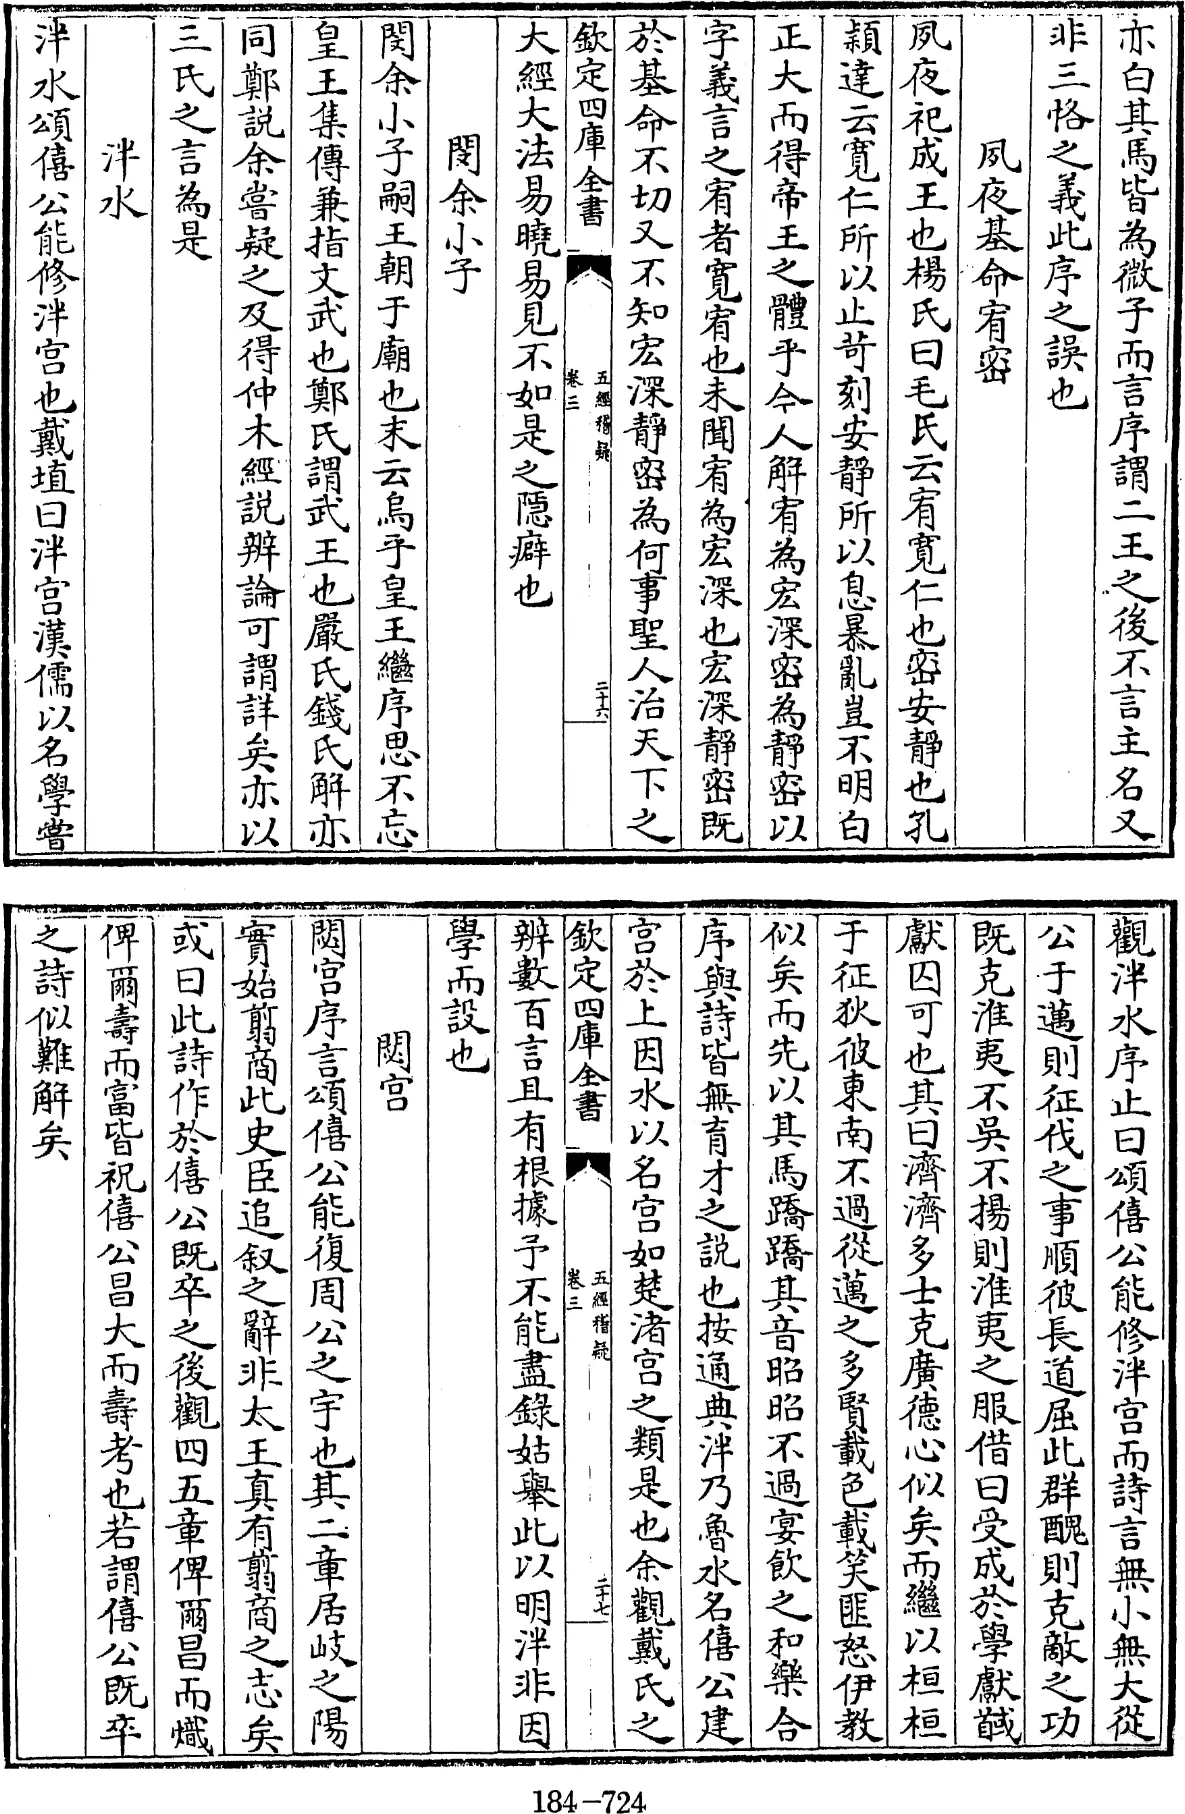 亦白其馬皆為微子而言序謂二王之後不言主名又
非三恪之義此序之誤也
夙夜基命宥密
夙夜祀成王也楊氏曰毛氏云宥寛仁也密安靜也孔
穎達云寛仁所以止苛刻安靜所以息暴亂豈不明白
正大而得帝王之體乎今人解宥為宏深密為靜密以
字義言之宥者寛宥也未聞宥為宏深也宏深靜密既
於基命不切又不知宏深靜密為何事聖人治天下之
欽定四庫全書
五經稽疑
卷三
二十六
大經大法易曉易見不如是之隱癖也
閔余小子
閔余小子嗣王朝于廟也末云烏乎皇王繼序思不忘
皇王集傳兼指文武也鄭氏謂武王也嚴氏錢氏解亦
同鄭説余嘗疑之及得仲木經説辨論可謂詳矣亦以
三氏之言為是
泮水
泮水頌僖公能修泮宫也戴埴曰泮宫漢儒以名學嘗
觀泮水序止曰頌僖公能修泮宫而詩言無小無大從
公于邁則征伐之事順彼長道屈此群醜則克敵之功
既克淮夷不吳不揚則淮夷之服借曰受成於學獻馘
獻囚可也其曰濟濟多士克廣德心似矣而繼以桓桓
于征狄彼東南不過從邁之多賢載色載笑匪怒伊教
似矣而先以其馬蹻蹻其音昭昭不過宴飲之和樂合
序與詩皆無育才之説也按通典泮乃魯水名僖公建
宫於上因水以名宫如楚渚宫之類是也余觀戴氏之
欽定四庫全書
五經稽疑
卷三
二十七
辨數百言且有根據予不能盡錄姑舉此以明泮非因
學而設也
閟宫
閟宫序言頌僖公能復周公之宇也其二章居岐之陽
實始翦商此史臣追叙之辭非太王真有翦商之志矣
或曰此詩作於僖公既卒之後觀四五章俾爾昌而熾
俾爾壽而富皆祝僖公昌大而壽考也若謂僖公既卒
之詩似難解矣
184-724